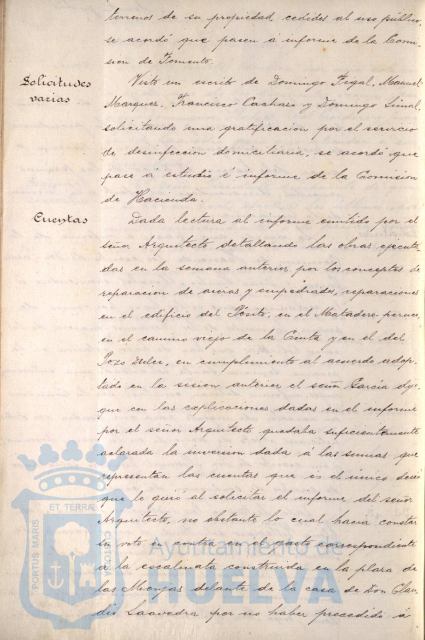 terrenos de su propiedad cedidos al uso público,
se acordó que pasen á informe de la Comi-
sion de Fomento.
Solicitudes
varias
Visto un escrito de Domingo Fegal, Manuel
Marquez, Francisco y Domingo
solicitando una gratificacion por el servicio
de desinfeccion domiciliaria, se acordó que
pase á estudio é informe de la Comision
de Hacienda.
Cuentas
Dada lectura al informe emitido por el
señor Arquitecto detallando las obras ejecuta-
das en la semana anterior, por los conceptos de
reparacion de aceras y empedrados, reparaciones
en el edificio del Pósito, en el Matadero
en el camino viejo de la y en el del
Pozo Dulce, en cumplimiento al acuerdo adop-
tado en la sesion anterior el señor García dijo
que con las explicaciones dadas en el informe
por el señor Arquitecto quedaba suficientemente
aclarada la inversion dada á las sumas que
representan las cuentas que es el único deseo
que le guió al solicitar el informe del señor
Arquitecto, no obstante lo cual hacia constar
su voto en contra en el gasto correspondiente
á la escalinata construida en la plaza de
las Monjas delante de la casa de Don Clau-
dio Saavedra por no haber precedido á
PORTUS MARIS
ET TERRAE
CUSTODIA
Ayuntamiento de
HUELVA